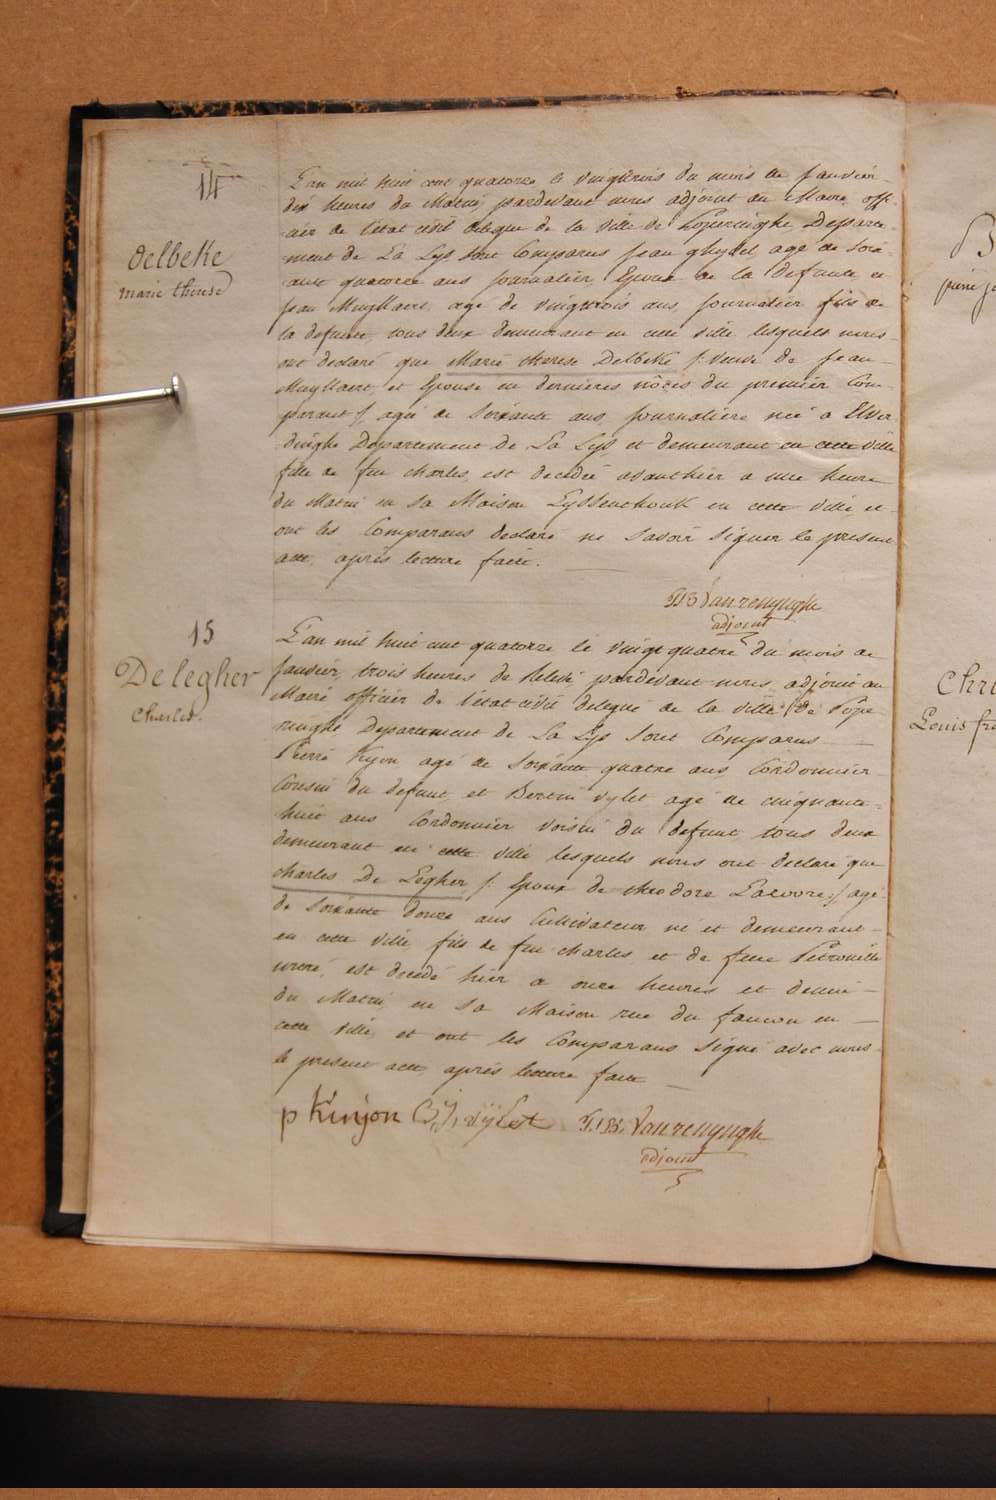 14
Delbeke
marie therese
L'an mil huit cent quatorze le vingttrois du mois de Janvier
dix heures du Matin, pardevant nous adjoint au Maire, offi-
-cier de l'état civil delegué de la Ville de Poperinghe, Departe-
-ment de La Lys sont Comparus Jean ghyzel, agé de Soix-
-ante quatorze ans Journalier, Epoux de la defunte et
Jean Muyllaert, agé de vingttrois ans, Journalier fils de
la defunte, tous deux demeurant en cette ville, lesquels nous
ont declaré que Marie therese Delbeke /: veuve de Jean
Muyllaert, et Epouse en dernieres nôces du premier Com-
parant :/ agée de Soixante ans, Journaliere née a Elver
-dinghe Departement de La Lys et demeurant en cette ville
fille de feu charles, est decedée avanthier a une heure
du Matin en sa Maison Eyssenhouk en cette ville, et
ont les Comparans declaré ne savoir signer le present
acte, après lecture faite.
PJB Vanrenynghe
adjoint
15
De legher
Charles.
L'an mil huit cent quatorze le vingt quatre du mois de
Janvier, trois heures de Relevé pardevant nous, adjoint au
Maire officier de l'état civil delegué de la ville de Pope-
ringhe Departement de La Lys sont Comparus
Pierre Kyon agé de soixante quatre ans, Cordonnier
Cousin du defunt, et Bertin vylet agé de cinquante-
huit ans Cordonnier voisin du defunt, tous deux
demeurant en cette ville lesquels nous ont declaré que
charles De Legher /: Epoux de theodore :/ agé
de soixante douze ans Cultivateur né et demeurant
en cette ville fils de feu charles, et de feue Petronille
est decedé hier a onze heures et demie
du Matin, en sa Maison rue du faucon en
cette ville, et ont les Comparans signé avec nous
le present acte, après lecture faite
p Kinjon B, J, vÿlet PJB. Vanrenynghe
adjoint
pierre
Chri
Louis fr